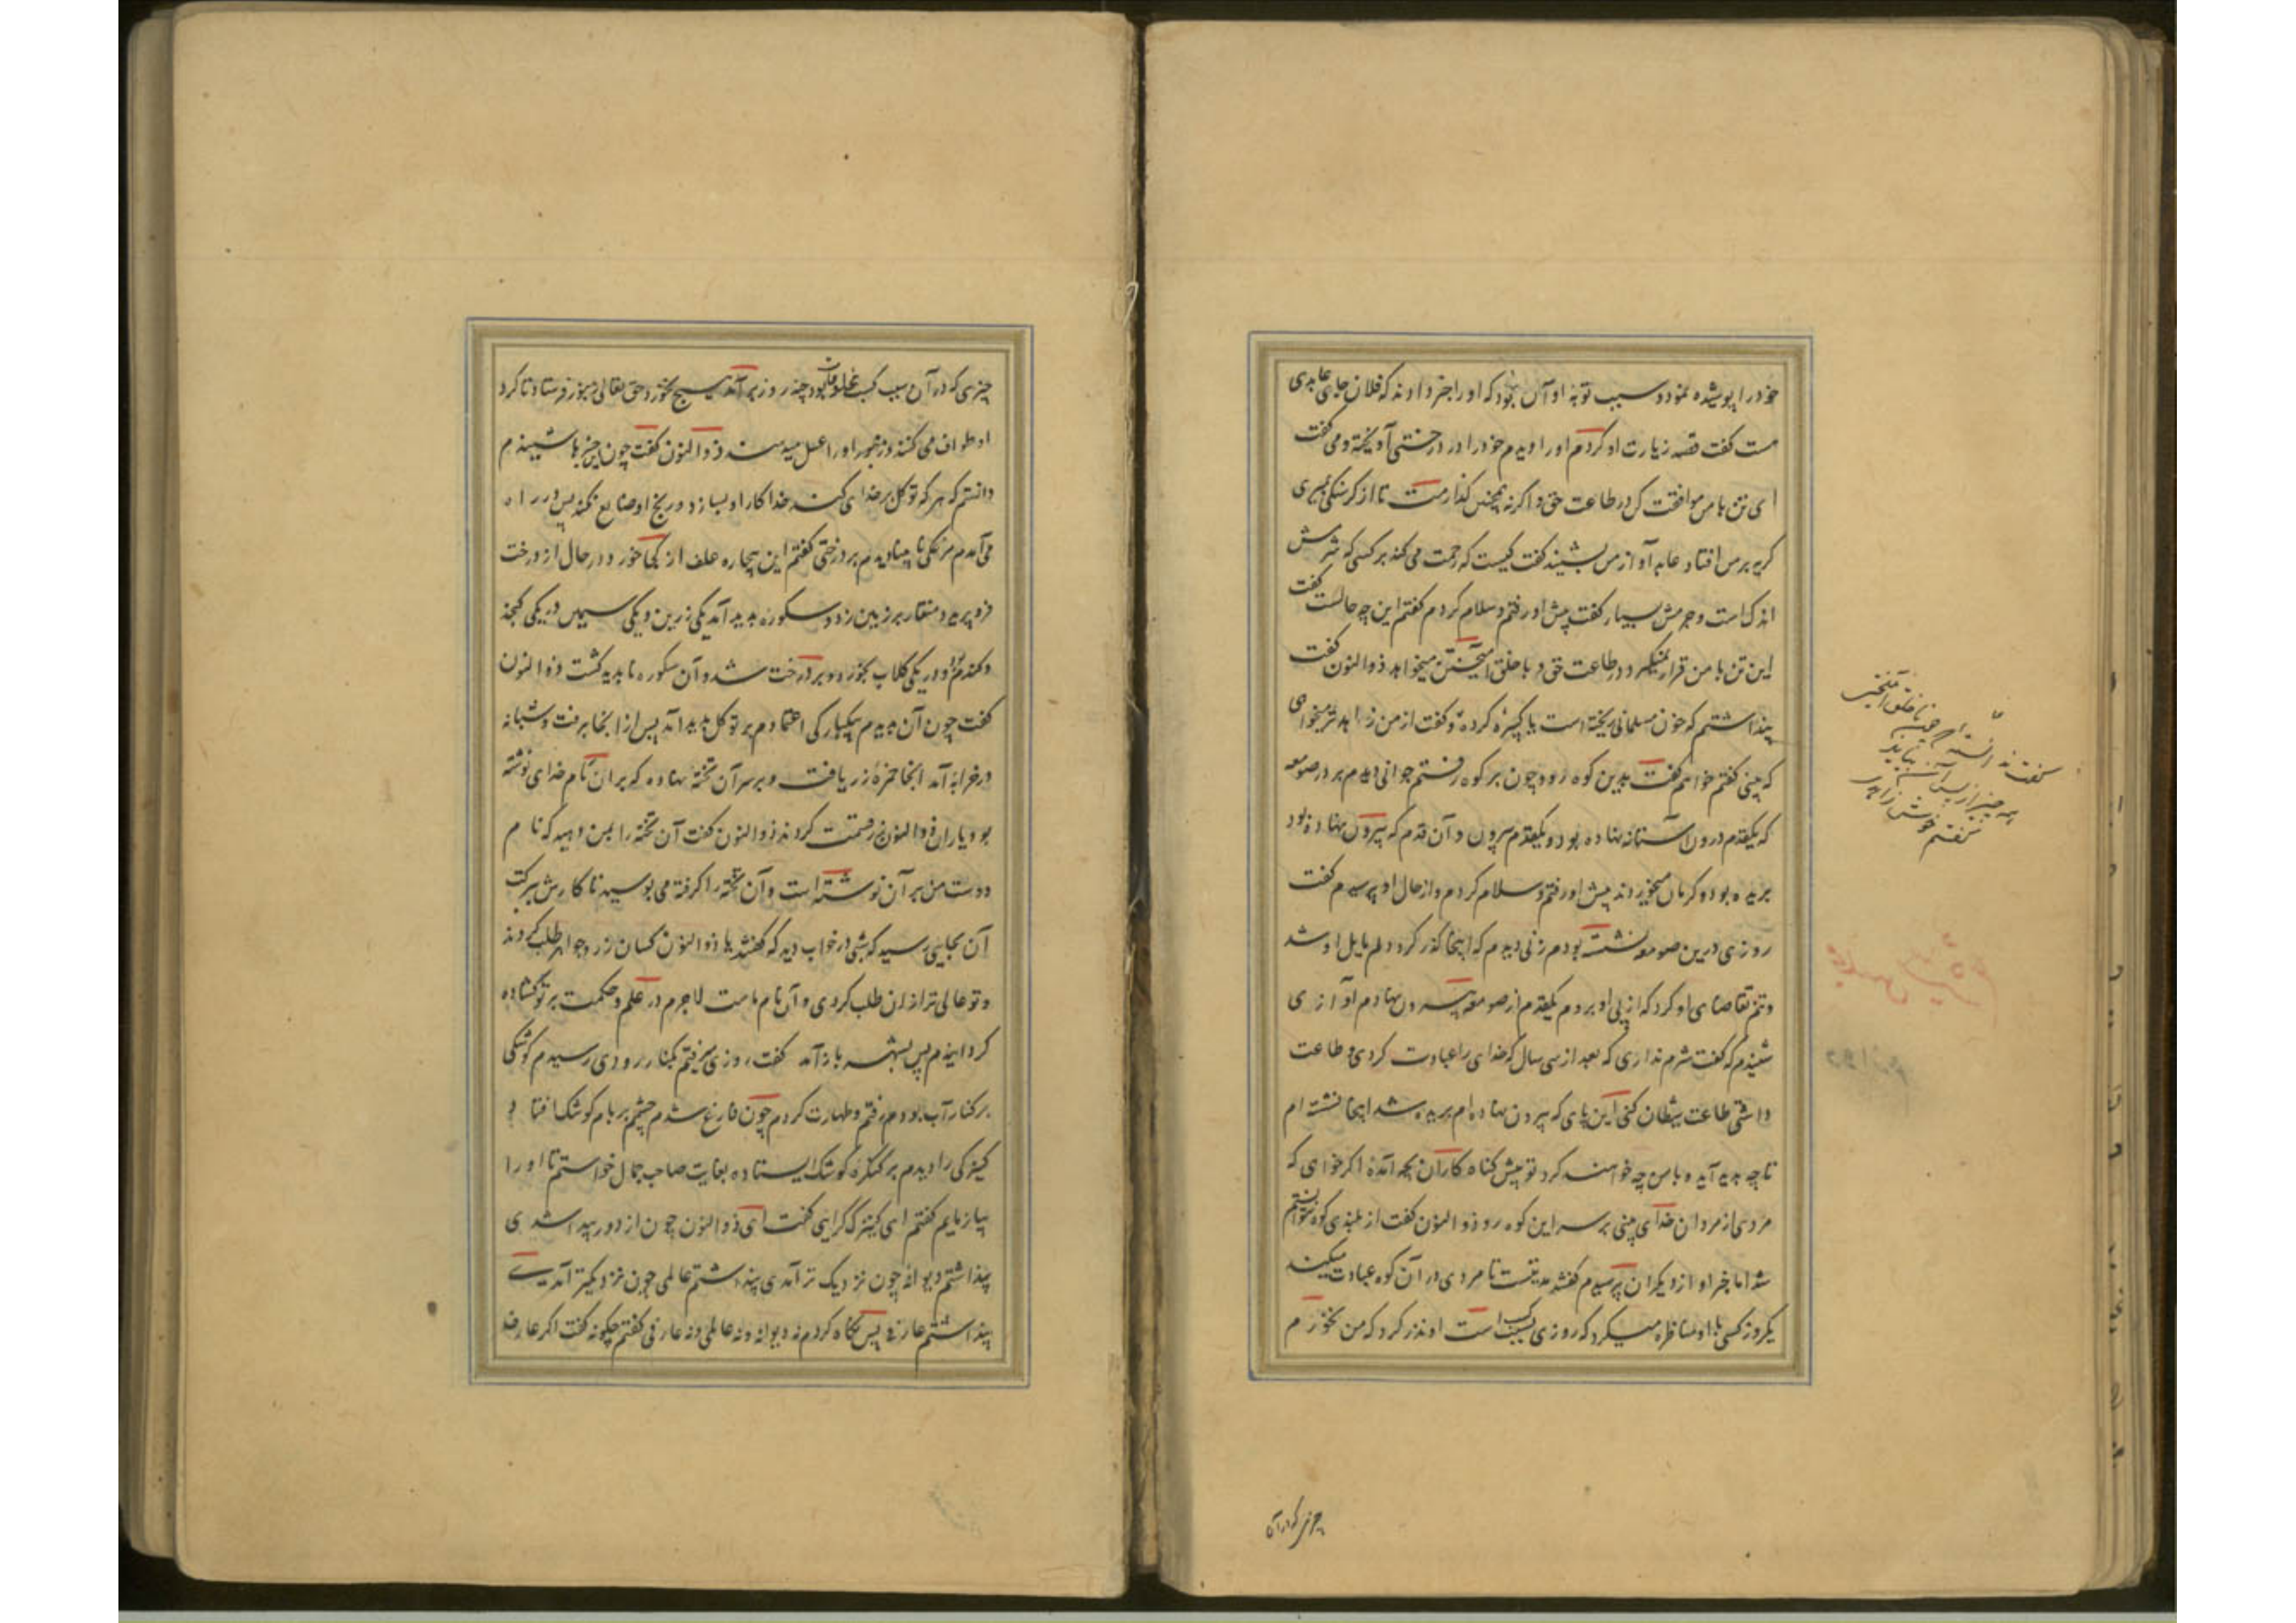 خود را پوشیده نمود و سبب توبه او آن بود که او را خبر دادند که فلان جای عابدی
است گفت قصد زیارت او کردم او را دیدم خود را در درختی آویخته و می گفت
ای تن با من موافقت کن در طاعت حق و اگرنه همچنین گذارمت تا از گرسنگی بمیری
گریه بر من افتاد عابد آواز من بشنید گفت کیست که رحمت می کند بر کسی که شرمش
اندک است و جرمش بسیار گفت پیش او رفتم و سلام کردم گفتم این چه حالست گفت
این تن با من قرار نمیگیرد در طاعت حق و با خلق آمیختن میخواهد ذوالنون گفت
پنداشتم که خون مسلمانی ریخته است یا کبیره کرده و گفت از من زاهدتر میخواهی
که بینی گفتم خواهم گفت بدین کوه رو و چون بر کوه رفتم جوانی دیدم بر در صومعه
که یکقدم درون آستانه نهاده بود و یکقدم بیرون و آن قدم که بیرون نهاده بود
بریده بود و کرمان میخوردند پیش او رفتم و سلام کردم و از حال او پرسیدم گفت
روزی درین صومعه نشسته بودم زنی دیدم که اینجا گذر کرد دلم مایل او شد
و تنم تقاضای او کرد که از پی او بردم یکقدم از صومعه بیرون نهادم آوازی
شنیدم که گفت شرم نداری که بعد از سی سال که خدای را عبادت کردی و طاعت
داشتی طاعت شیطان کنی این پای که بیرون نهاده ام بریده شد اینجا نشسته ام
تا چه پدید آید و با من چه خواهند کرد تو پیش گناه کاران بچه آمدۀ اگر خواهی که
مردی از مردان خدای بینی بر سر این کوه رو ذوالنون گفت از بلندی کوه نتوانستم
شد اما خبر او از دیگران پرسیدم گفتند مدتیست تا مردی در آن کوه عبادت میکند
یکروز کسی با او مناظره میکرد که روزی بسبب کسب است او نذر کرد که من نخورم
گفت ندانستۀ چون با خلق آمیختی
همه چیز از پس آن بیاید
گفتم خوش زاهدی
چیزی که در آن
چیزی که در آن سبب کسب مخلوقات بود چند روز برآمد هیچ نخورد حق تعالی زنبور فرستاد تا گرد
او طواف می کنند و زنبور او را عسل میدهند ذوالنون گفت چون این چیزها شنیدم
دانستم که هر که توکل بر خدای کند خدا کار او بسازد و رنج او ضایع نکند پس در راه
می آمدم مرغکی نابینا دیدم بر درختی گفتم این بیچاره علف از کجا خورد در حال از درخت
فرو پرید و منقار بر زمین زد دو سکوره پدید آمد یکی زرین و یکی سیمین در یکی کنجد
و گندم بود و در یکی گلاب بخورد و بر درخت شد و آن سکوره ناپدید گشت ذوالنون
گفت چون آن دیدم بیکبارگی اعتمادم بر توکل پدید آمد پس از آنجا برفت و شبانه
در خرابه آمد آنجا خمره زر یافت و بر سر آن تخته نهاده که بر آن نام خدای نوشته
بود یاران ذوالنون زر قسمت کردند ذوالنون گفت آن تخته را بمن دهید که نام
دوست من بر آن نوشته است و آن تخته را گرفته می بوسید تا کارش ببرکت
آن بجایی رسید که شبی در خواب دید که گفتند یا ذوالنون کسان زر و جواهر طلب کردند
و تو عالی تر از آن طلب کردی و آن نام ماست لاجرم در علم و حکمت بر تو گشاده
گردانیدم پس بشهر باز آمد گفت روزی میرفتم بکنار رودی رسیدم کوشکی
بر کنار آب بود دم رفتم و طهارت کردم چون فارغ شدم چشمم بر بام کوشک افتاد
کنیزکی را دیدم بر کنگره کوشک ایستاده بغایت صاحب جمال خواستم تا او را
بیازمایم گفتم ای کنیزک کرایی گفت ای ذوالنون چون از دور پیدا شدی
پنداشتم دیوانه چون نزدیک تر آمدی پنداشتم عالمی چون نزدیکتر آمدی
پنداشتم عارفی پس نگاه کردم نه دیوانه و نه عالمی و نه عارفی گفتم چگونه گفت اگر عارف